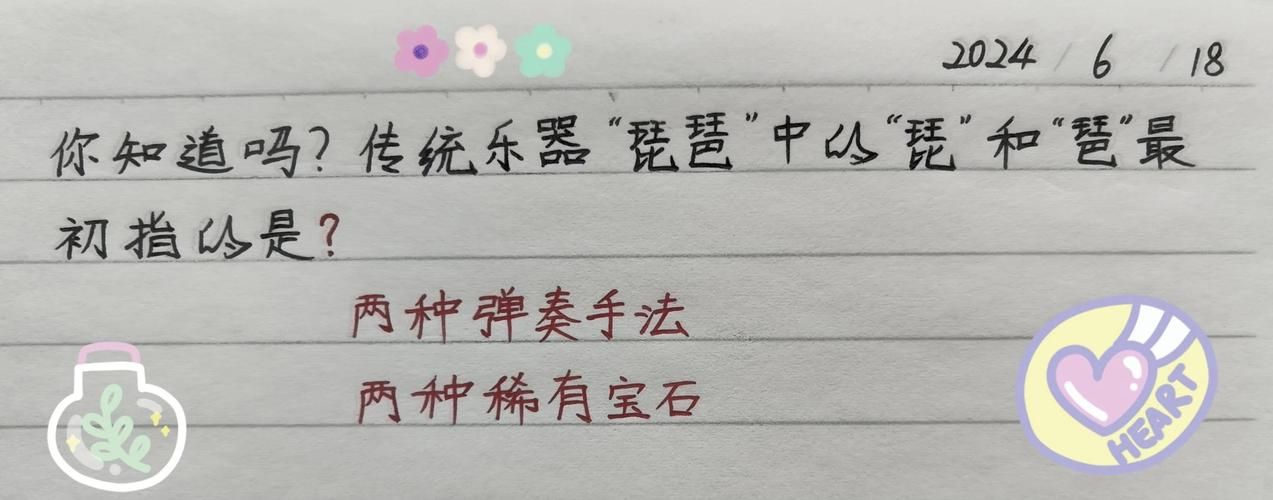 2024 / 6 / 18
你知道吗?传统乐器“琵琶”中的“琵”和“琶”最
初指的是?
两种弹奏手法
两种稀有宝石
HEART